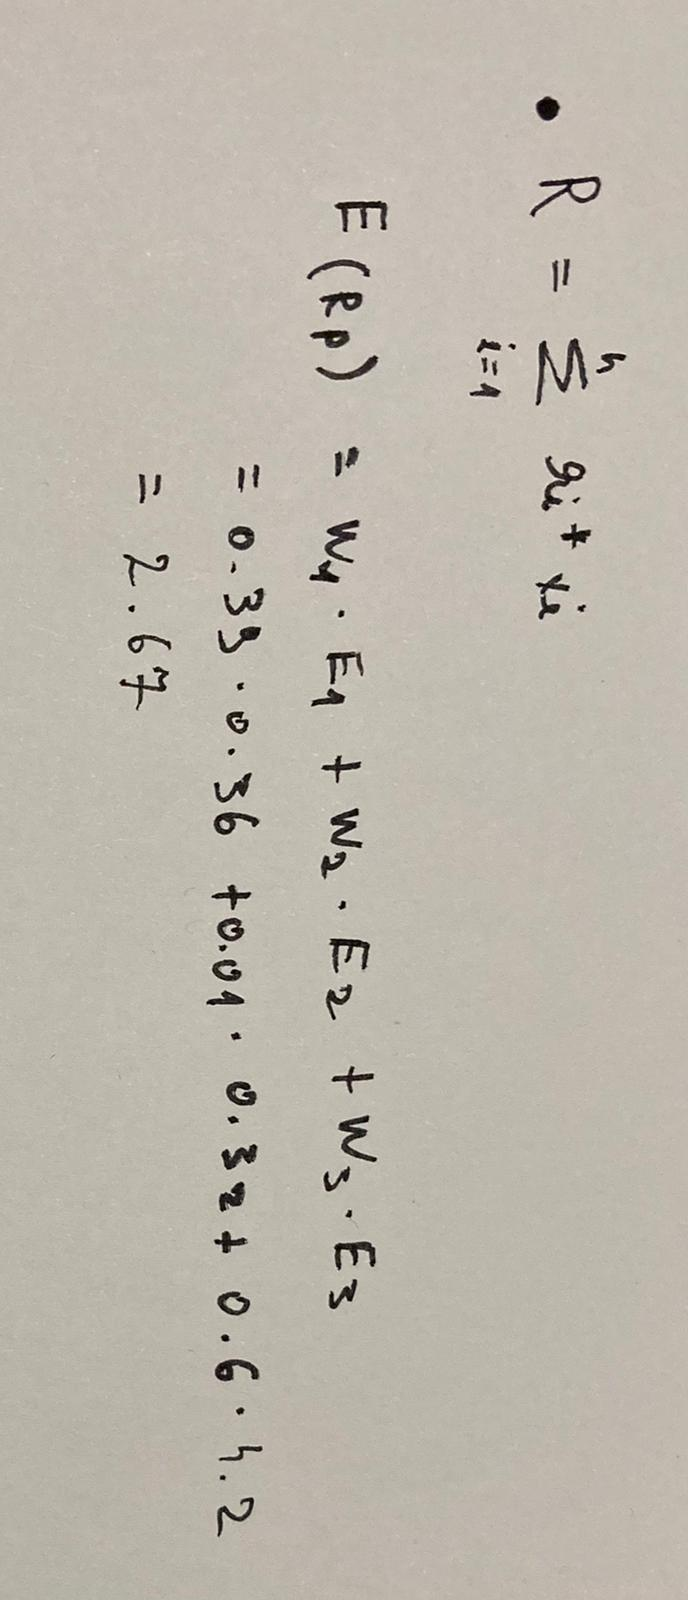 • R = ∑ᵢ₌₁ⁿ rᵢ * xᵢ
E(Rp) = W₁ · E₁ + W₂ · E₂ + W₃ · E₃
= 0.39 · 0.36 + 0.01 · 0.32 + 0.6 · 4.2
= 2.67